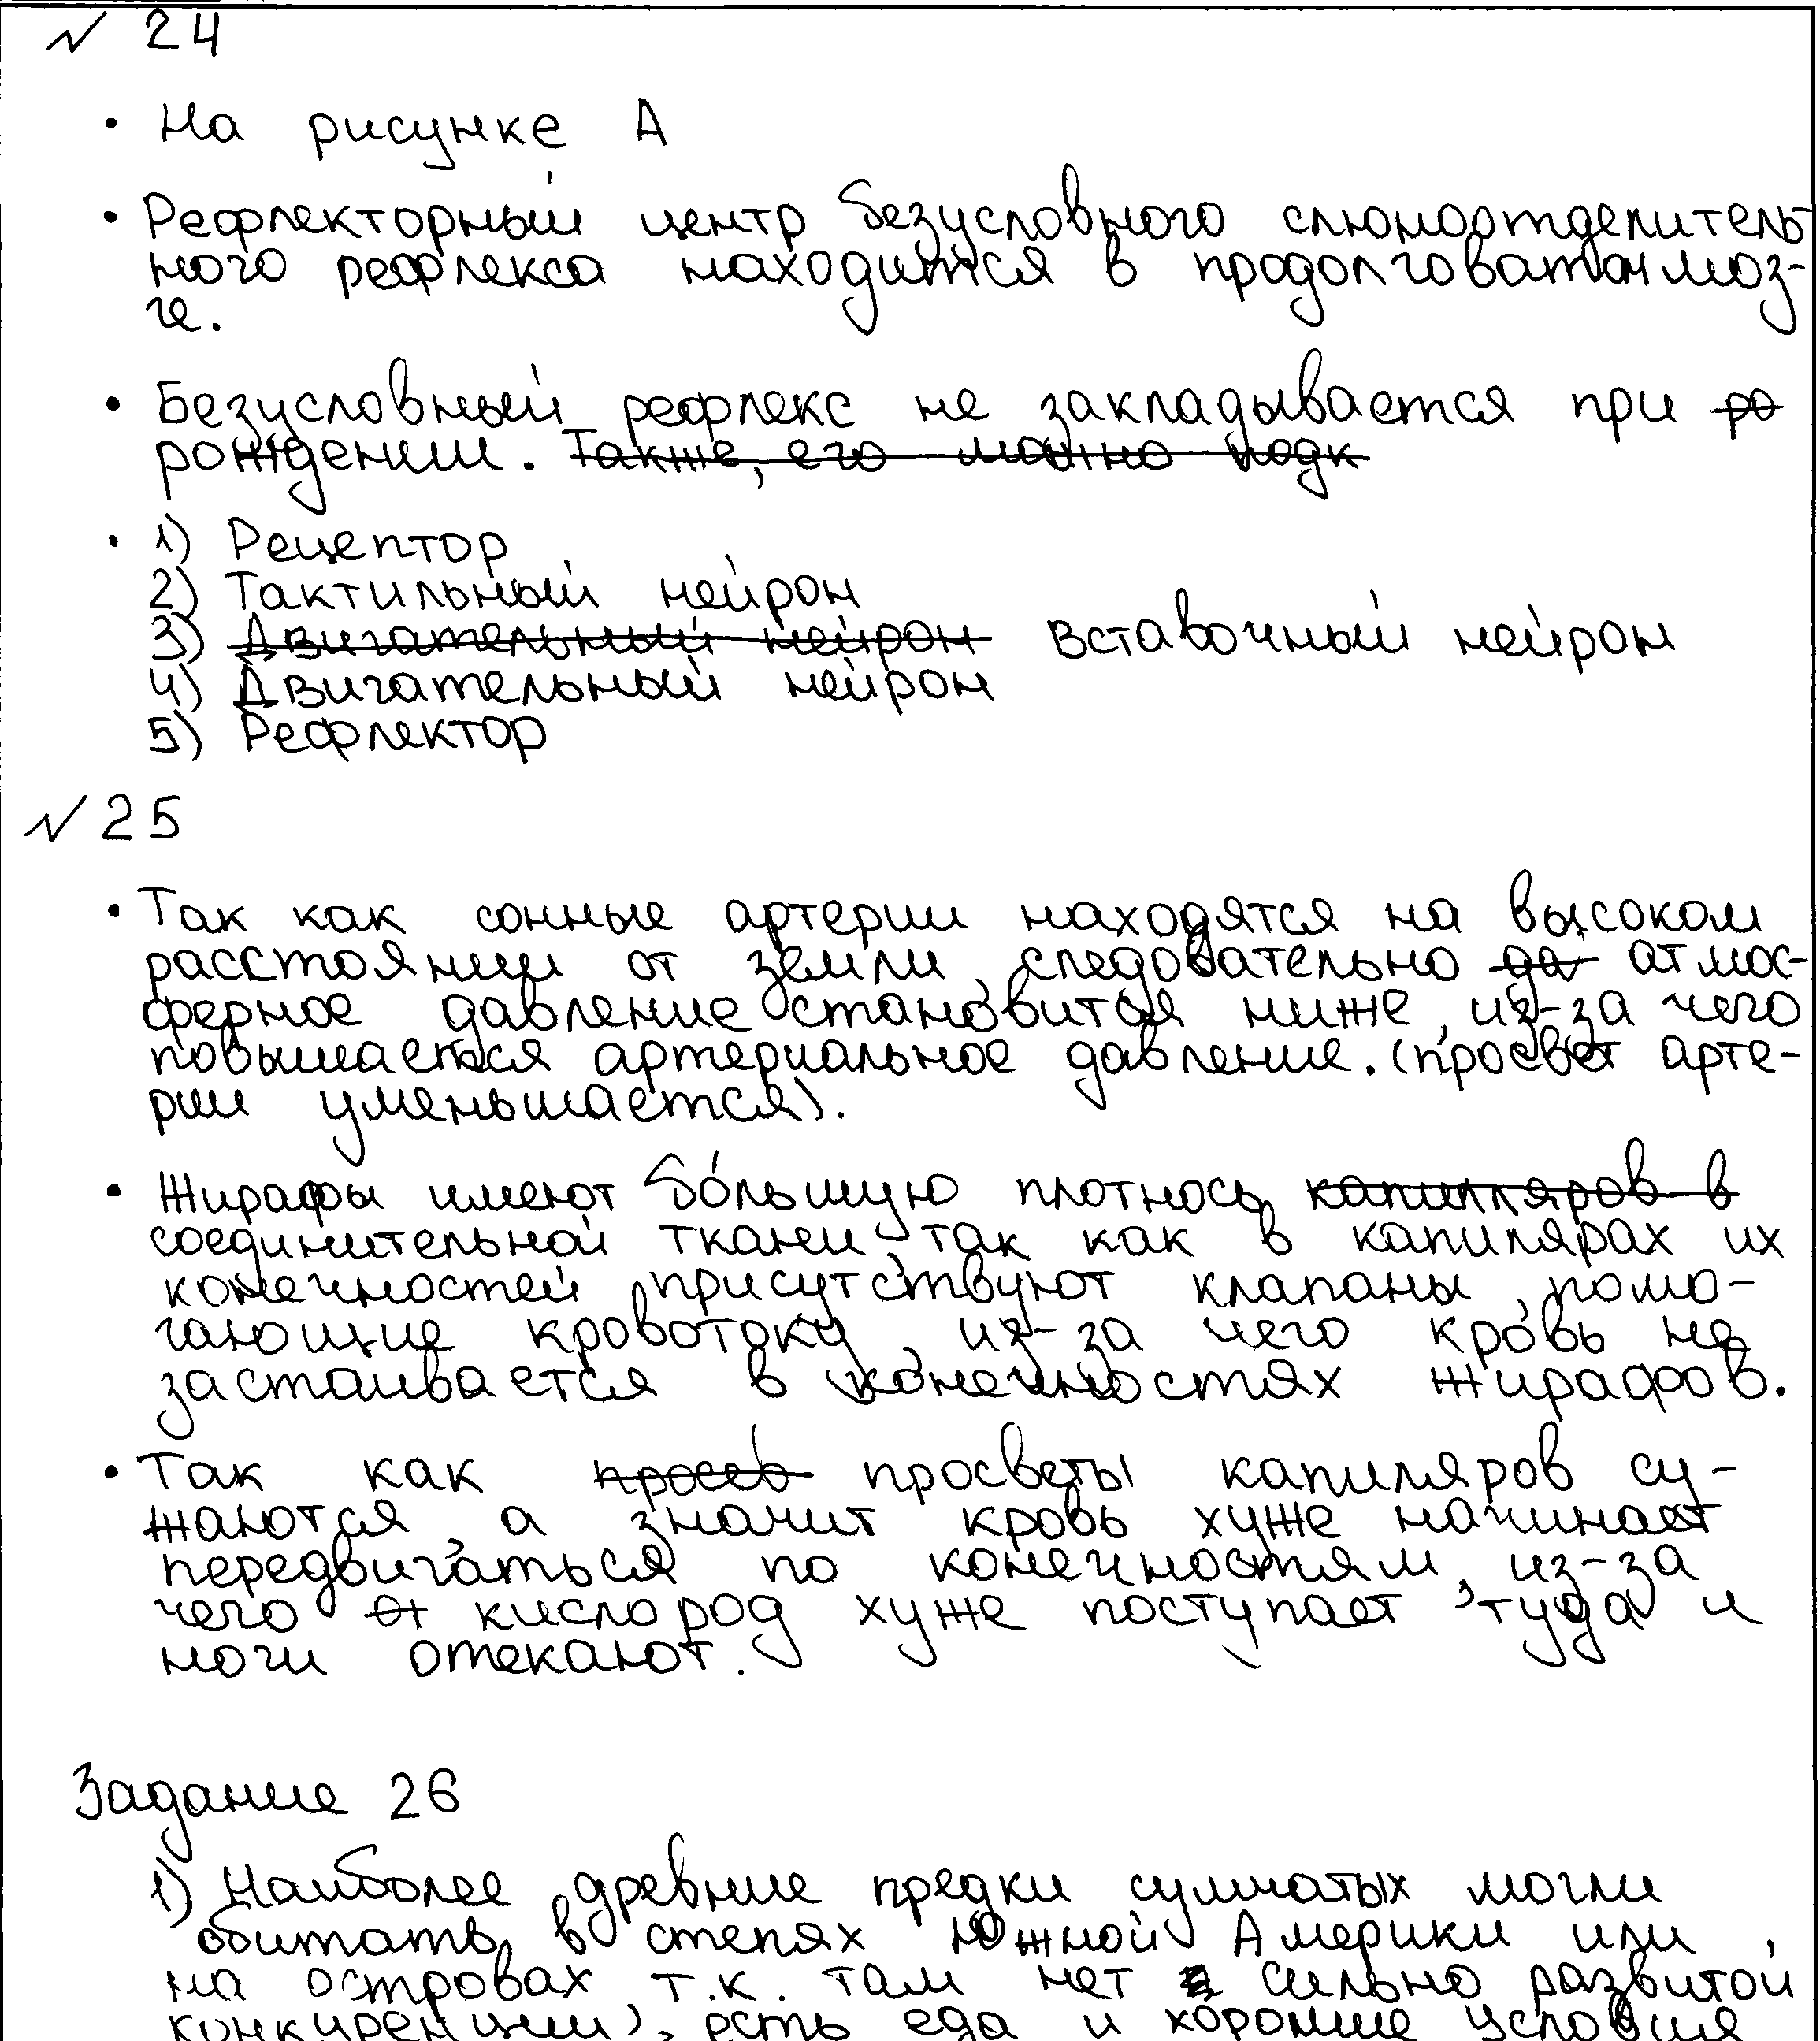 № 24
• На рисунке А
• Рефлекторный центр безусловного слюноотделитель
ного рефлекса находится в продолговатом моз-
ге.
• Безусловный рефлекс не закладывается при ро
рождении. Также, его можно подк
• 1) Рецептор
2) Тактильный нейрон
3) Двигательный нейрон вставочный нейрон
4) Двигательный нейрон
5) Рефлектор
№ 25
• Так как сонные артерии находятся на высоком
расстоянии от земли, следовательно да атмос-
ферное давление становится ниже, из-за чего
повышается артериальное давление. (просвет арте-
рии уменьшается).
• Жирафы имеют бо́льшую плотнось капилляров в
соединительной ткани, так как в капилярах их
конечностей присутствуют клапаны, помо-
гающие кровотоку, из-за чего кровь не
застаивается в конечностях жирафов.
• Так как просв просветы капиляров су-
жаются, а значит кровь хуже начинает
передвигаться по конечностям, из-за
чего от кислород хуже поступает туда и
ноги отекают.
Задание 26
1) Наиболее древние предки сумчатых могли
обитать в степях Южной Америки или,
на островах т.к. там нет сильно развитой
конкуренции, есть еда и хорошие условия